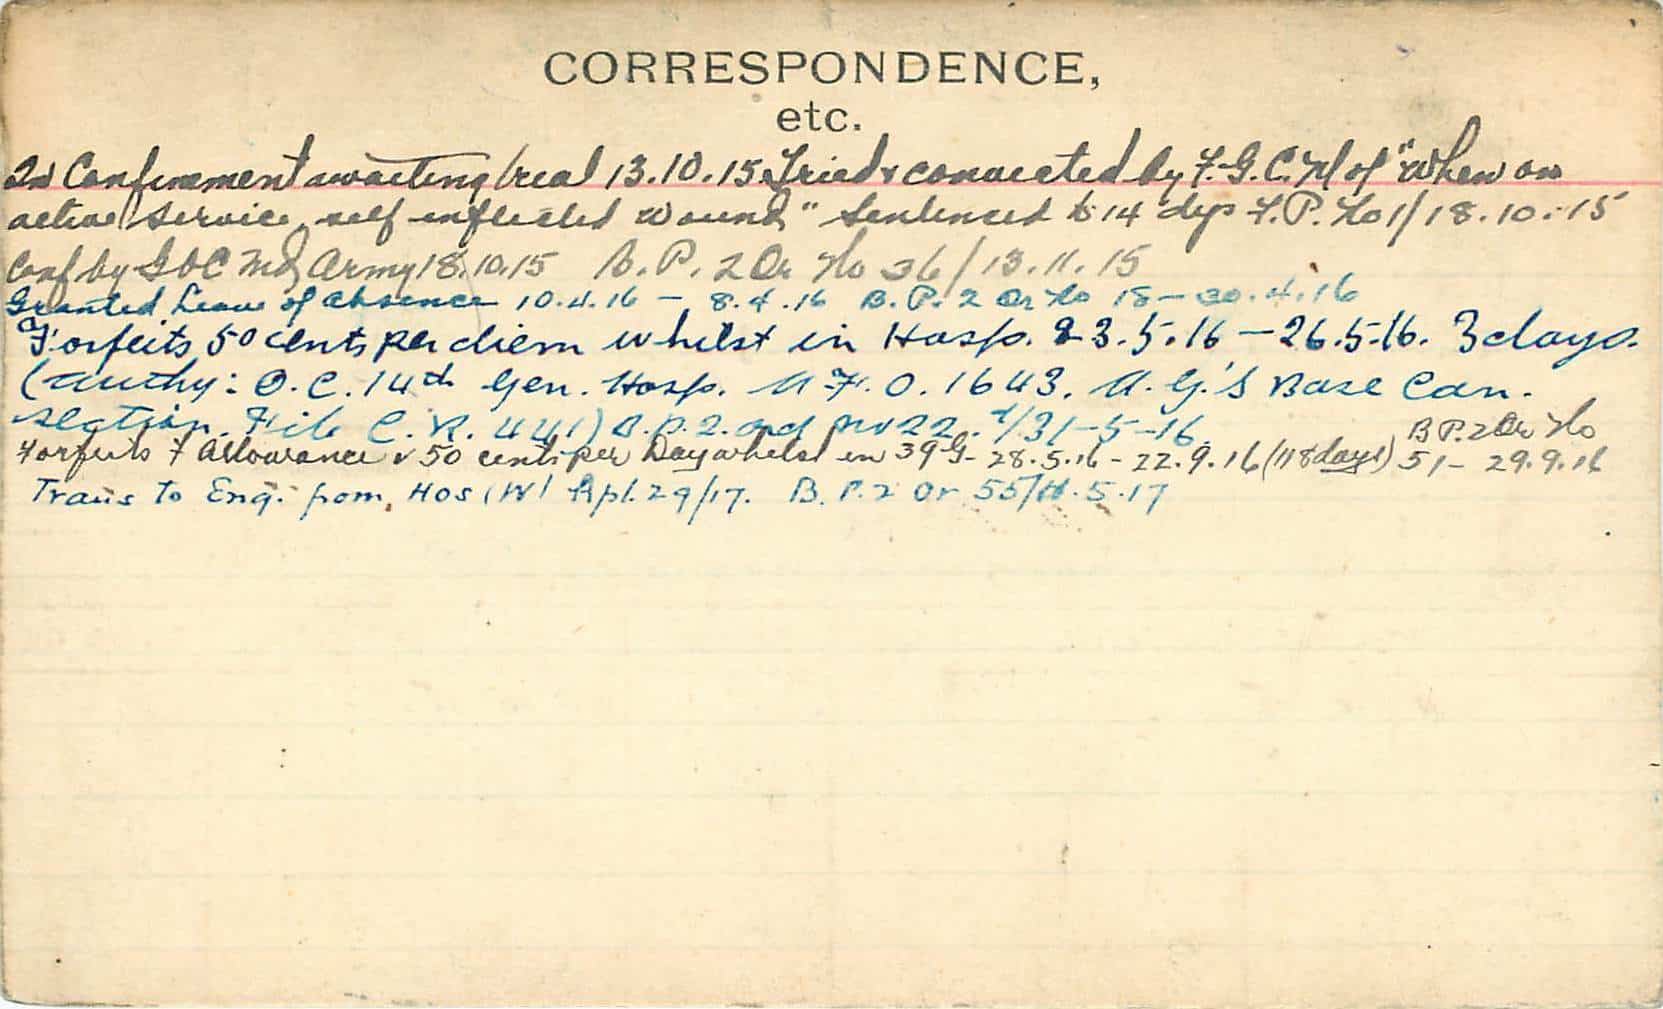 CORRESPONDENCE,
etc.
In Confinement awaiting trial 13.10.15. Tried & convicted by F.G.C.M of "When on
active service self inflicted wound" Sentenced to 14 dys F.P. No 1/18.10.15
Conf by GOC 2nd Army 18.10.15 B.P. 2 Or No 36/13.11.15
Granted Leave of absence 10.4.16 - 8.4.16 B.P. 2 Or No 18 - 30.4.16
Forfeits 50 cents per diem whilst in Hosp. 23.5.16 - 26.5.16. 3 days.
(Authy: O.C. 14th Gen. Hosp. A.F.O. 1643. A.G.'s Base Can.
section. File C.R. 441) B.P.2. ord No 22. d/31-5-16.
Forfeits F Allowance & 50 cents per Day whilst in 39 G- 28.5.16 - 22.9.16 (118 days) B P. 2 Or No 51 - 29.9.16
Trans to Eng. from Hos (W) Apl. 29/17. B.P. 2 Or 55/11.5.17